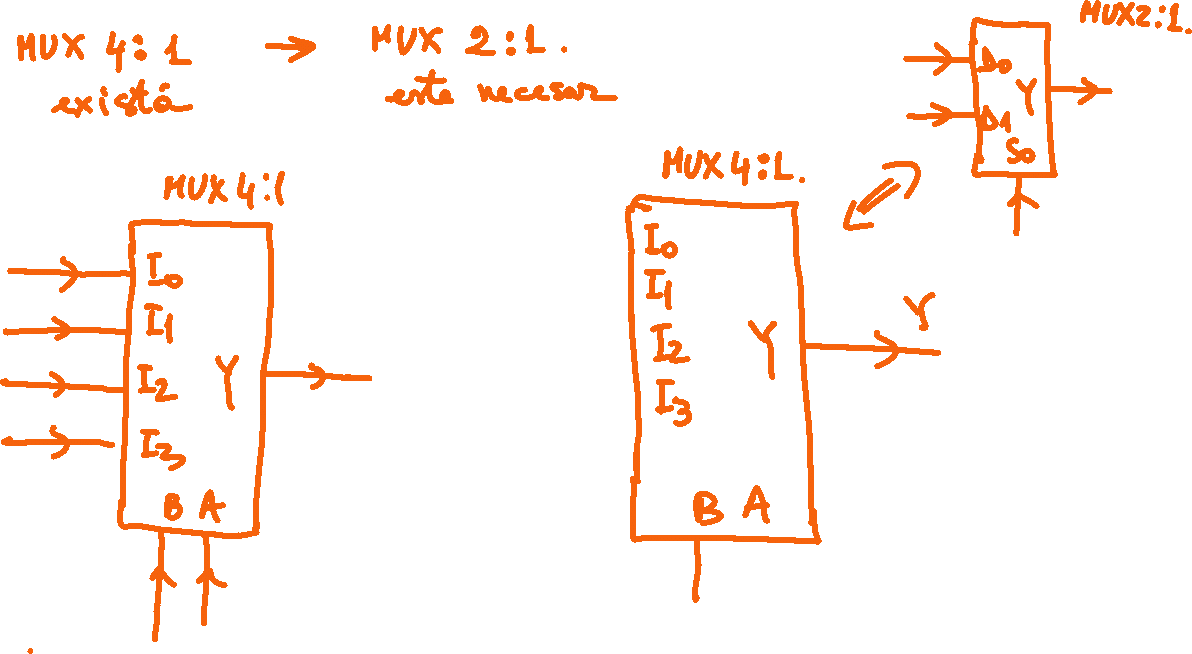 MUX 4:1 → MUX 2:1.
există este necesar
MUX2:1.
D0
D1
Y
S0
MUX 4:1
I0
I1
I2
I3
Y
B A
MUX 4:1.
I0
I1
I2
I3
Y
B A
Y